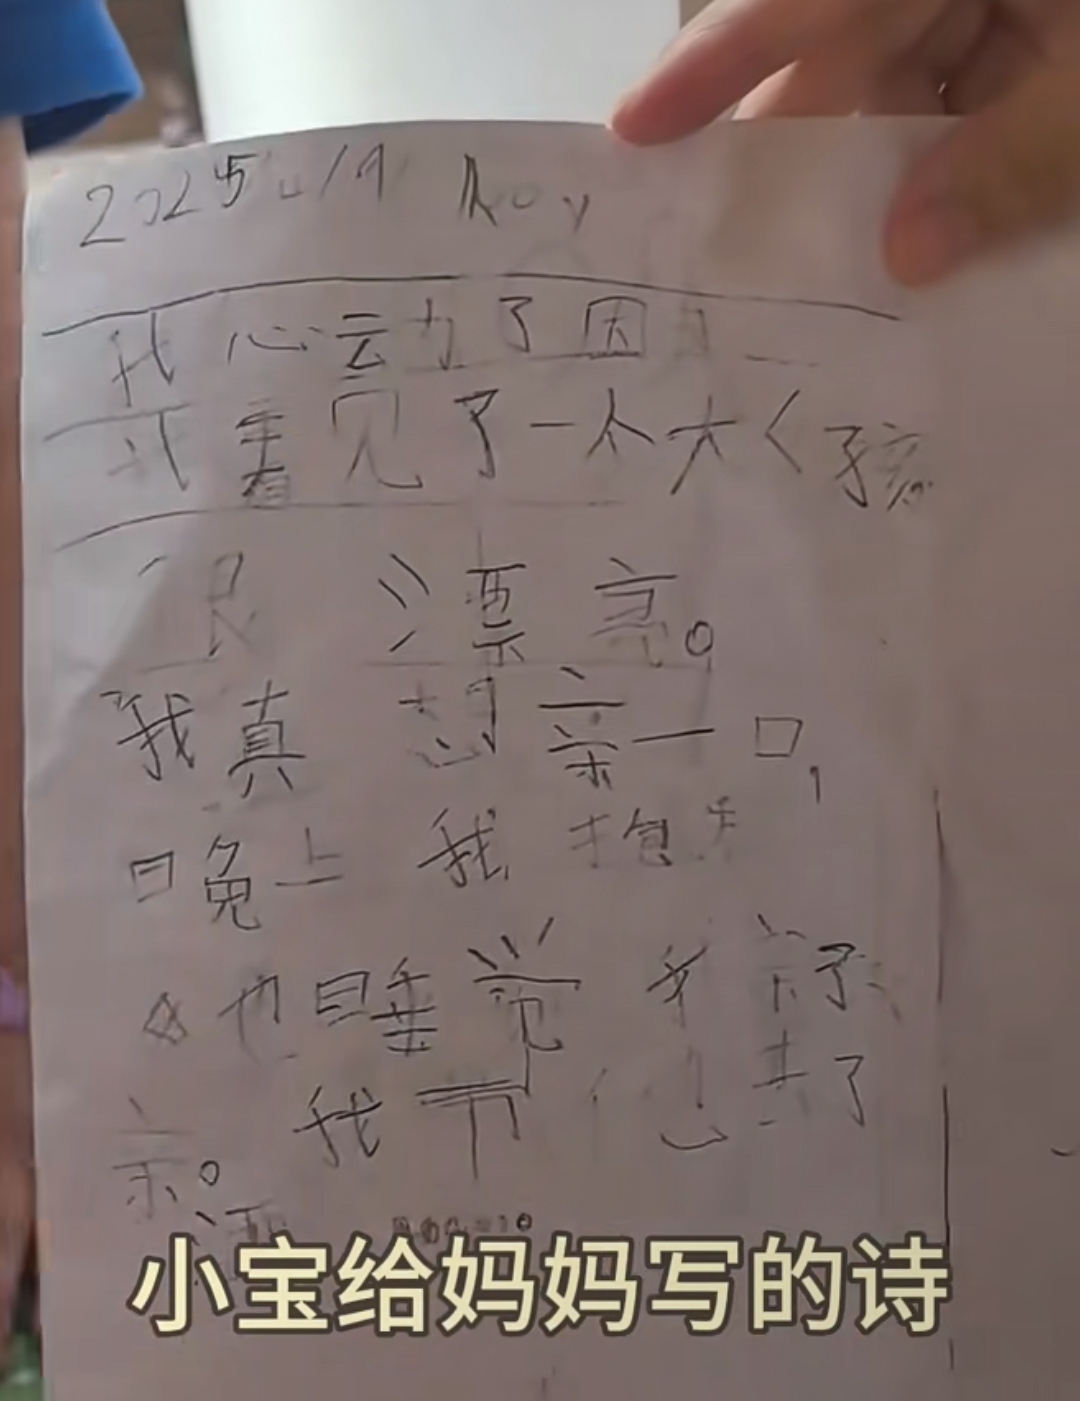 2025 4/9 Roy
我心动了因为
我看见了一个大女孩
很漂亮。
我真想亲一口,
晚上我抱着
她睡觉我亲了
亲。我节
小宝给妈妈写的诗